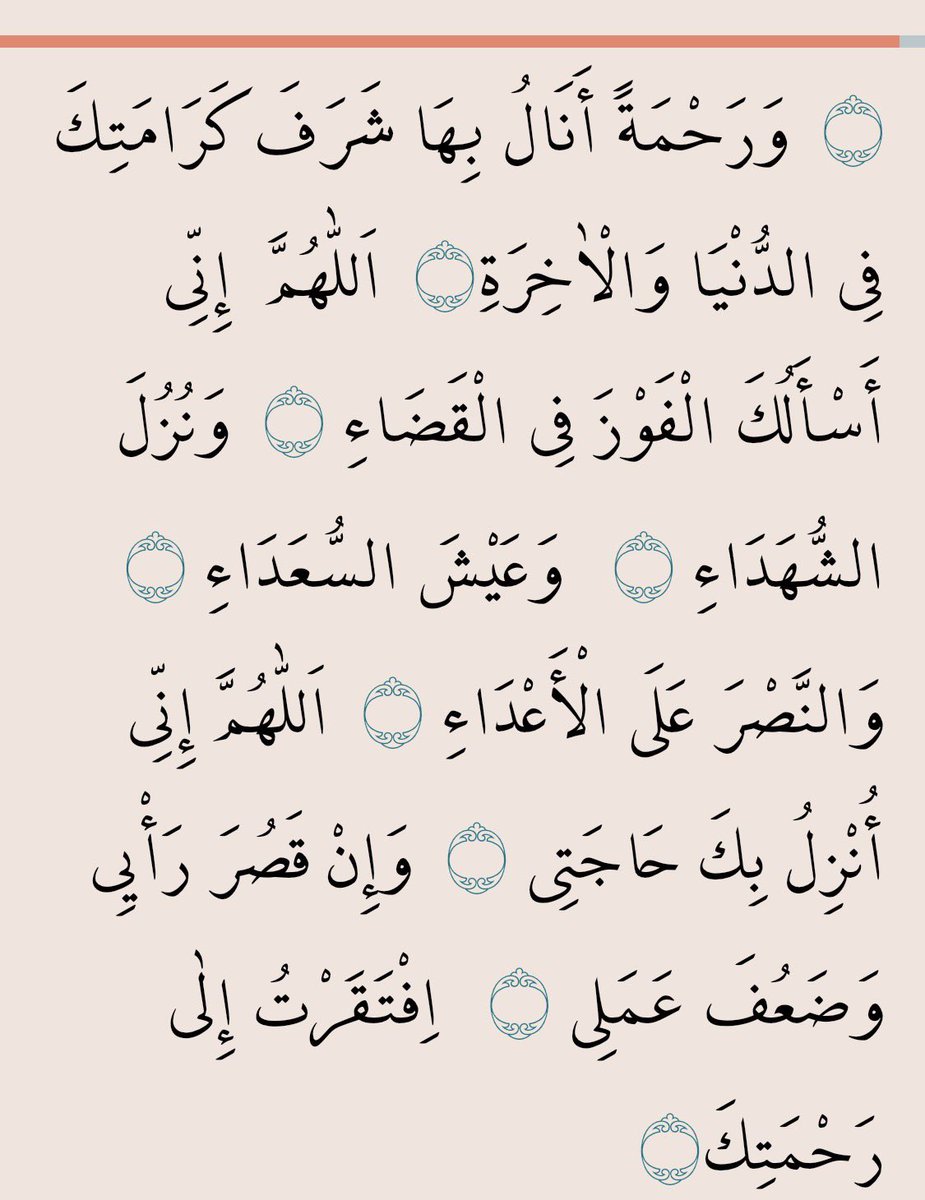 ۝ وَرَحْمَةً أَنَالُ بِهَا شَرَفَ كَرَامَتِكَ
فِى الدُّنْيَا وَالْاٰخِرَةِ۝ اَللّٰهُمَّ إِنِّى
أَسْأَلُكَ الْفَوْزَ فِى الْقَضَاءِ ۝ وَنُزُلَ
الشُّهَدَاءِ ۝ وَعَيْشَ السُّعَدَاءِ ۝
وَالنَّصْرَ عَلَى الْأَعْدَاءِ ۝ اَللّٰهُمَّ إِنِّى
أُنْزِلُ بِكَ حَاجَتِى ۝ وَإِنْ قَصُرَ رَأْيِي
وَضَعُفَ عَمَلِى ۝ اِفْتَقَرْتُ إِلٰى
رَحْمَتِكَ۝